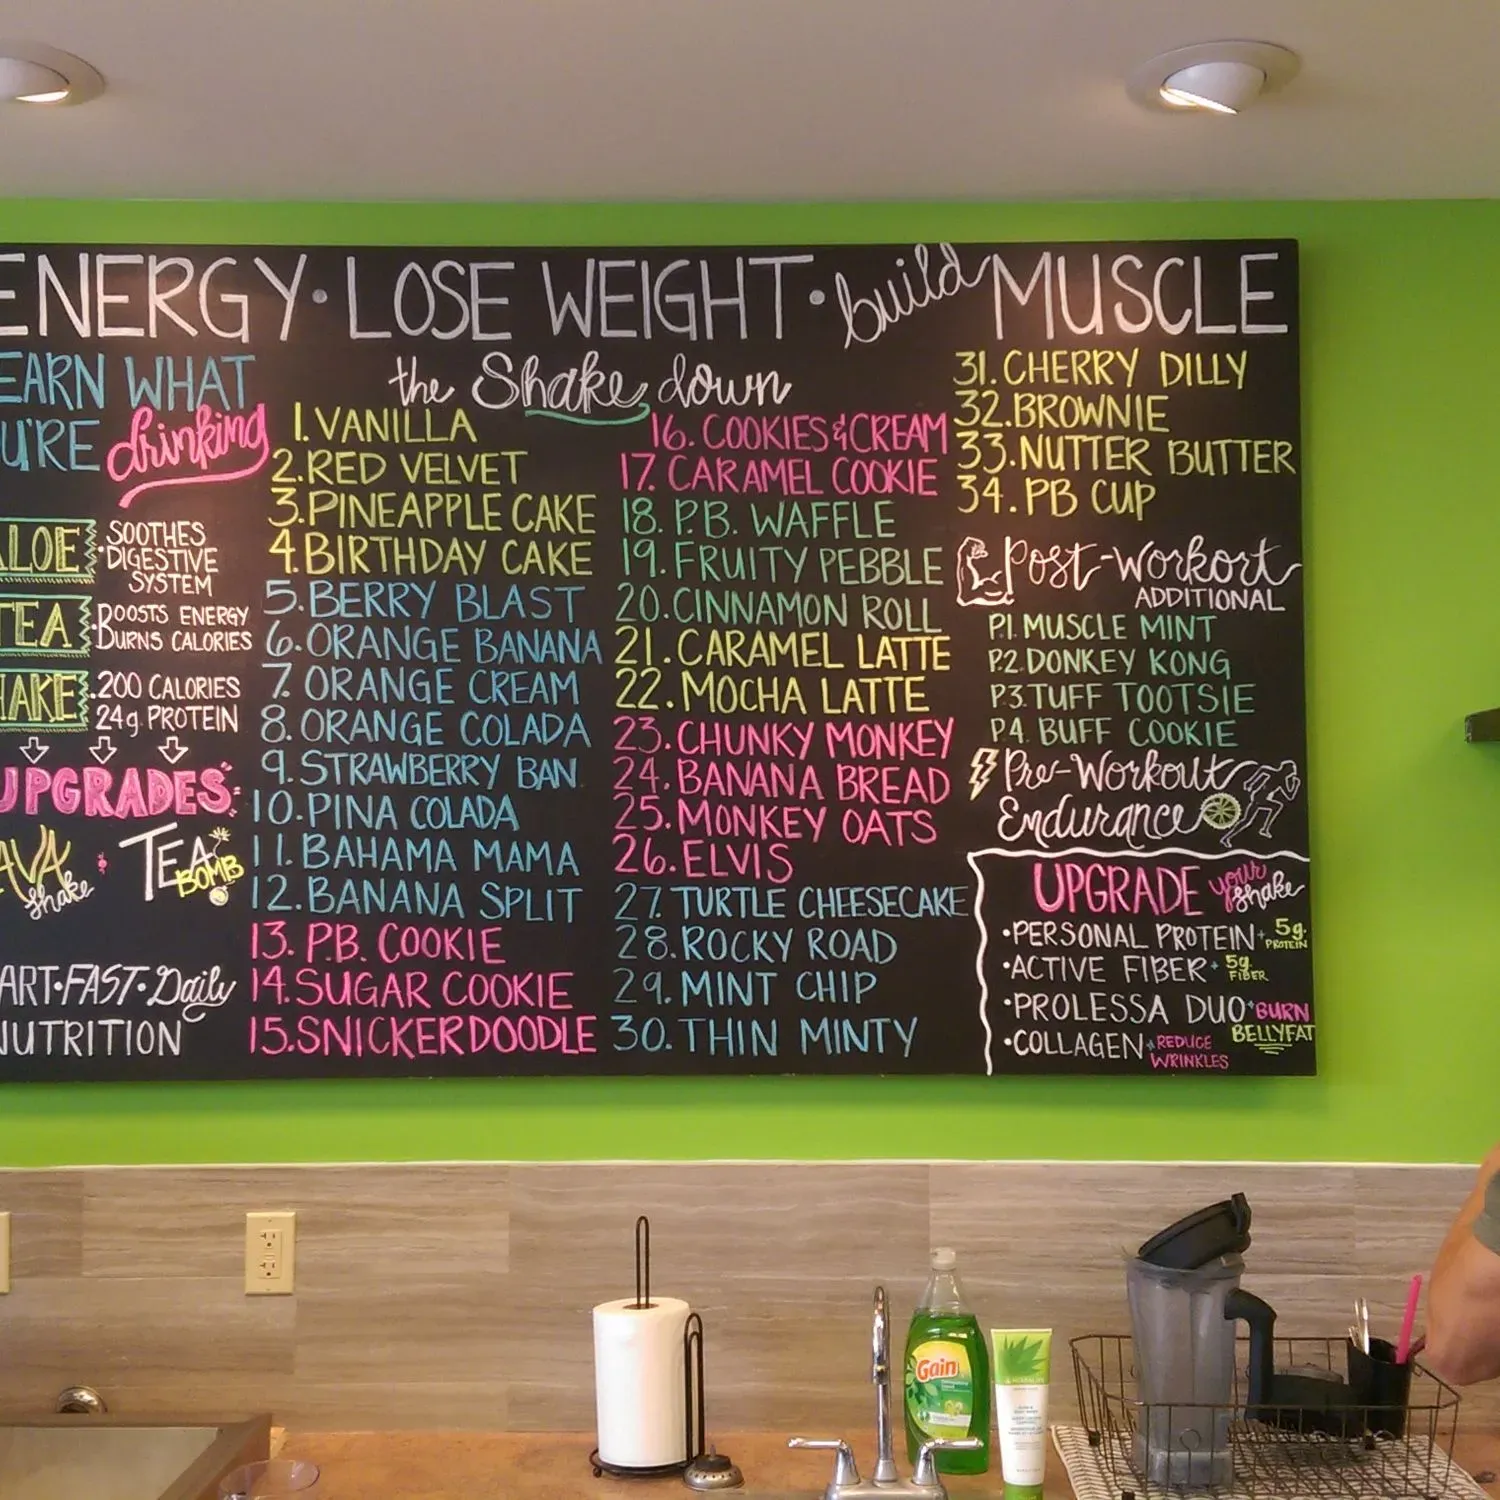 ENERGY · LOSE WEIGHT · build MUSCLE
EARN WHAT
U'RE drinking
ALOE
· SOOTHES
· DIGESTIVE
SYSTEM
TEA
· BOOSTS ENERGY
BURNS CALORIES
HAKE
. 200 CALORIES
24g. PROTEIN
UPGRADES"
AVA
shake
TEA
BOMB
ART · FAST · Daily
NUTRITION
the Shake down
1. VANILLA
2. RED VELVET
3. PINEAPPLE CAKE
4. BIRTHDAY CAKE
5. BERRY BLAST
6. ORANGE BANANA
7. ORANGE CREAM
8. ORANGE COLADA
9. STRAWBERRY BAN
10. PINA COLADA
11. BAHAMA MAMA
12. BANANA SPLIT
13. P.B. COOKIE
14. SUGAR COOKIE
15. SNICKERDOODLE
16. COOKIES & CREAM
17. CARAMEL COOKIE
18. P.B. WAFFLE
19. FRUITY PEBBLE
20. CINNAMON ROLL
21. CARAMEL LATTE
22. MOCHA LATTE
23. CHUNKY MONKEY
24. BANANA BREAD
25. MONKEY OATS
26. ELVIS
27. TURTLE CHEESECAKE
28. ROCKY ROAD
29. MINT CHIP
30. THIN MINTY
31. CHERRY DILLY
32. BROWNIE
33. NUTTER BUTTER
34. PB CUP
Post-Workout
ADDITIONAL
P.1. MUSCLE MINT
P.2. DONKEY KONG
P.3. TUFF TOOTSIE
P.4. BUFF COOKIE
Pre-Workout
Endurance
UPGRADE your shake
· PERSONAL PROTEIN + 5g. PROTEIN
· ACTIVE FIBER + 5g. FIBER
· PROLESSA DUO + BURN BELLYFAT
· COLLAGEN + REDUCE WRINKLES
Gain
HERBALIFE